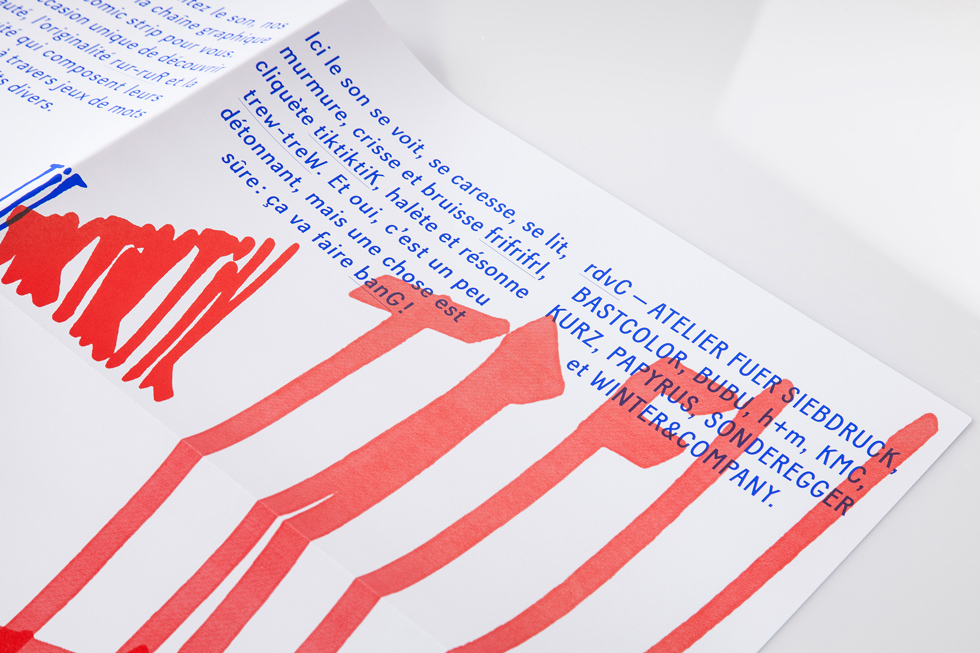 itez le son. nos
la chaîne graphique
comic strip pour vous.
occasion unique de découvrir
l'originalité rur-ruR et la
qui composent leurs
à travers jeux de mots
divers.
Ici le son se voit, se caresse, se lit,
murmure, crisse et bruisse frifrifrI,
cliquète tiktiktiK, halète et résonne
trew-treW. Et oui, c'est un peu
détonnant, mais une chose est
sûre: ça va faire banG!
rdvC – ATELIER FUER SIEBDRUCK,
BASTCOLOR, BUBU, h+m, KMC,
KURZ, PAPYRUS, SONDEREGGER
et WINTER&COMPANY.